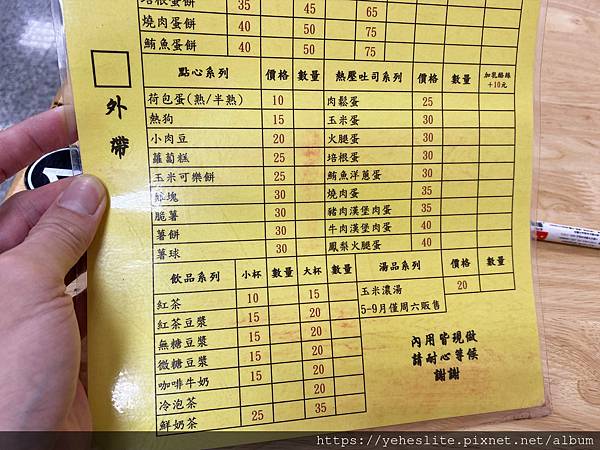 培根蛋餅 35 45 65
燒肉蛋餅 40 50 75
鮪魚蛋餅 40 50 75
外帶
點心系列 價格 數量 熱壓吐司系列 價格 數量 加乳酪絲
+10元
荷包蛋(熟/半熟) 10 肉鬆蛋 25
熱狗 15 玉米蛋 30
小肉豆 20 火腿蛋 30
蘿蔔糕 25 培根蛋 30
玉米可樂餅 25 鮪魚洋蔥蛋 30
塊 30 燒肉蛋 35
脆薯 30 豬肉漢堡肉蛋 35
薯餅 30 牛肉漢堡肉蛋 40
薯球 30 鳳梨火腿蛋 40
飲品系列 小杯 數量 大杯 數量 湯品系列 價格 數量
紅茶 10 15 玉米濃湯 20
紅茶豆漿 15 20 5-9月僅周六販售
無糖豆漿 15 20
微糖豆漿 15 20
咖啡牛奶 15 20
冷泡茶 20
鮮奶茶 25 35
內用皆現做
請耐心等候
謝謝
https://yeheslite.pixnet.net/album